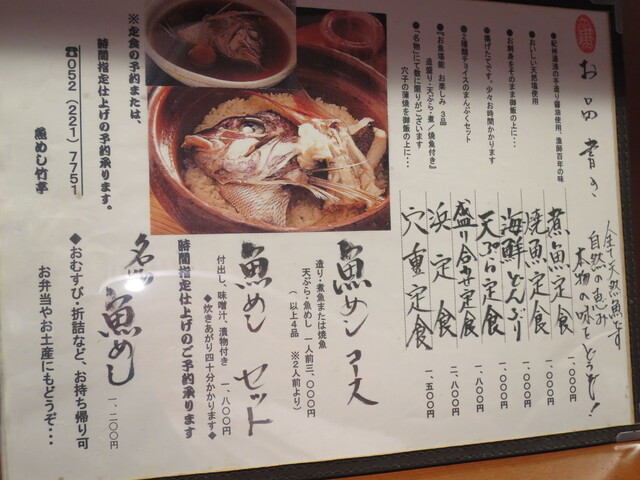 お品書き
全て天然魚です
自然の恵み
本物の味をどうぞ！
●紀州湯浅の手造り醤油使用、漁師百年の味
煮魚定食 一、〇〇〇円
●おいしい天然塩使用
焼魚定食 一、〇〇〇円
●お刺身をそのまま御飯の上に・・・
海鮮どんぶり 一、〇〇〇円
●揚げたてです。少々お時間かかります
天ぷら定食 一、八〇〇円
●2種類チョイスのまんぷくセット
盛り合せ定食 一、八〇〇円
●『お魚堪能 お楽しみ 3品
造盛り・天ぷら・煮／焼魚付き』
浜定食 二、八〇〇円
●『名物』にて数に限りがございます
穴子の蒲焼を御飯の上に・・・
穴重定食 一、五〇〇円
魚めしコース
造り・煮魚または焼魚
天ぷら・魚めし 一人前三、〇〇〇円
（以上4品 ※2人前より）
魚めしセット
付出し、味噌汁、漬物付き 一、八〇〇円
◆炊きあがり四十分かかります◆
時間指定仕上げのご予約承ります
名物 魚めし 一、二〇〇円
◆おむすび・折詰など、お持ち帰り可
お弁当やお土産にもどうぞ・・・
※定食の予約または、
時間指定仕上げの予約承ります。
☎052（221）7751
魚めし竹亭